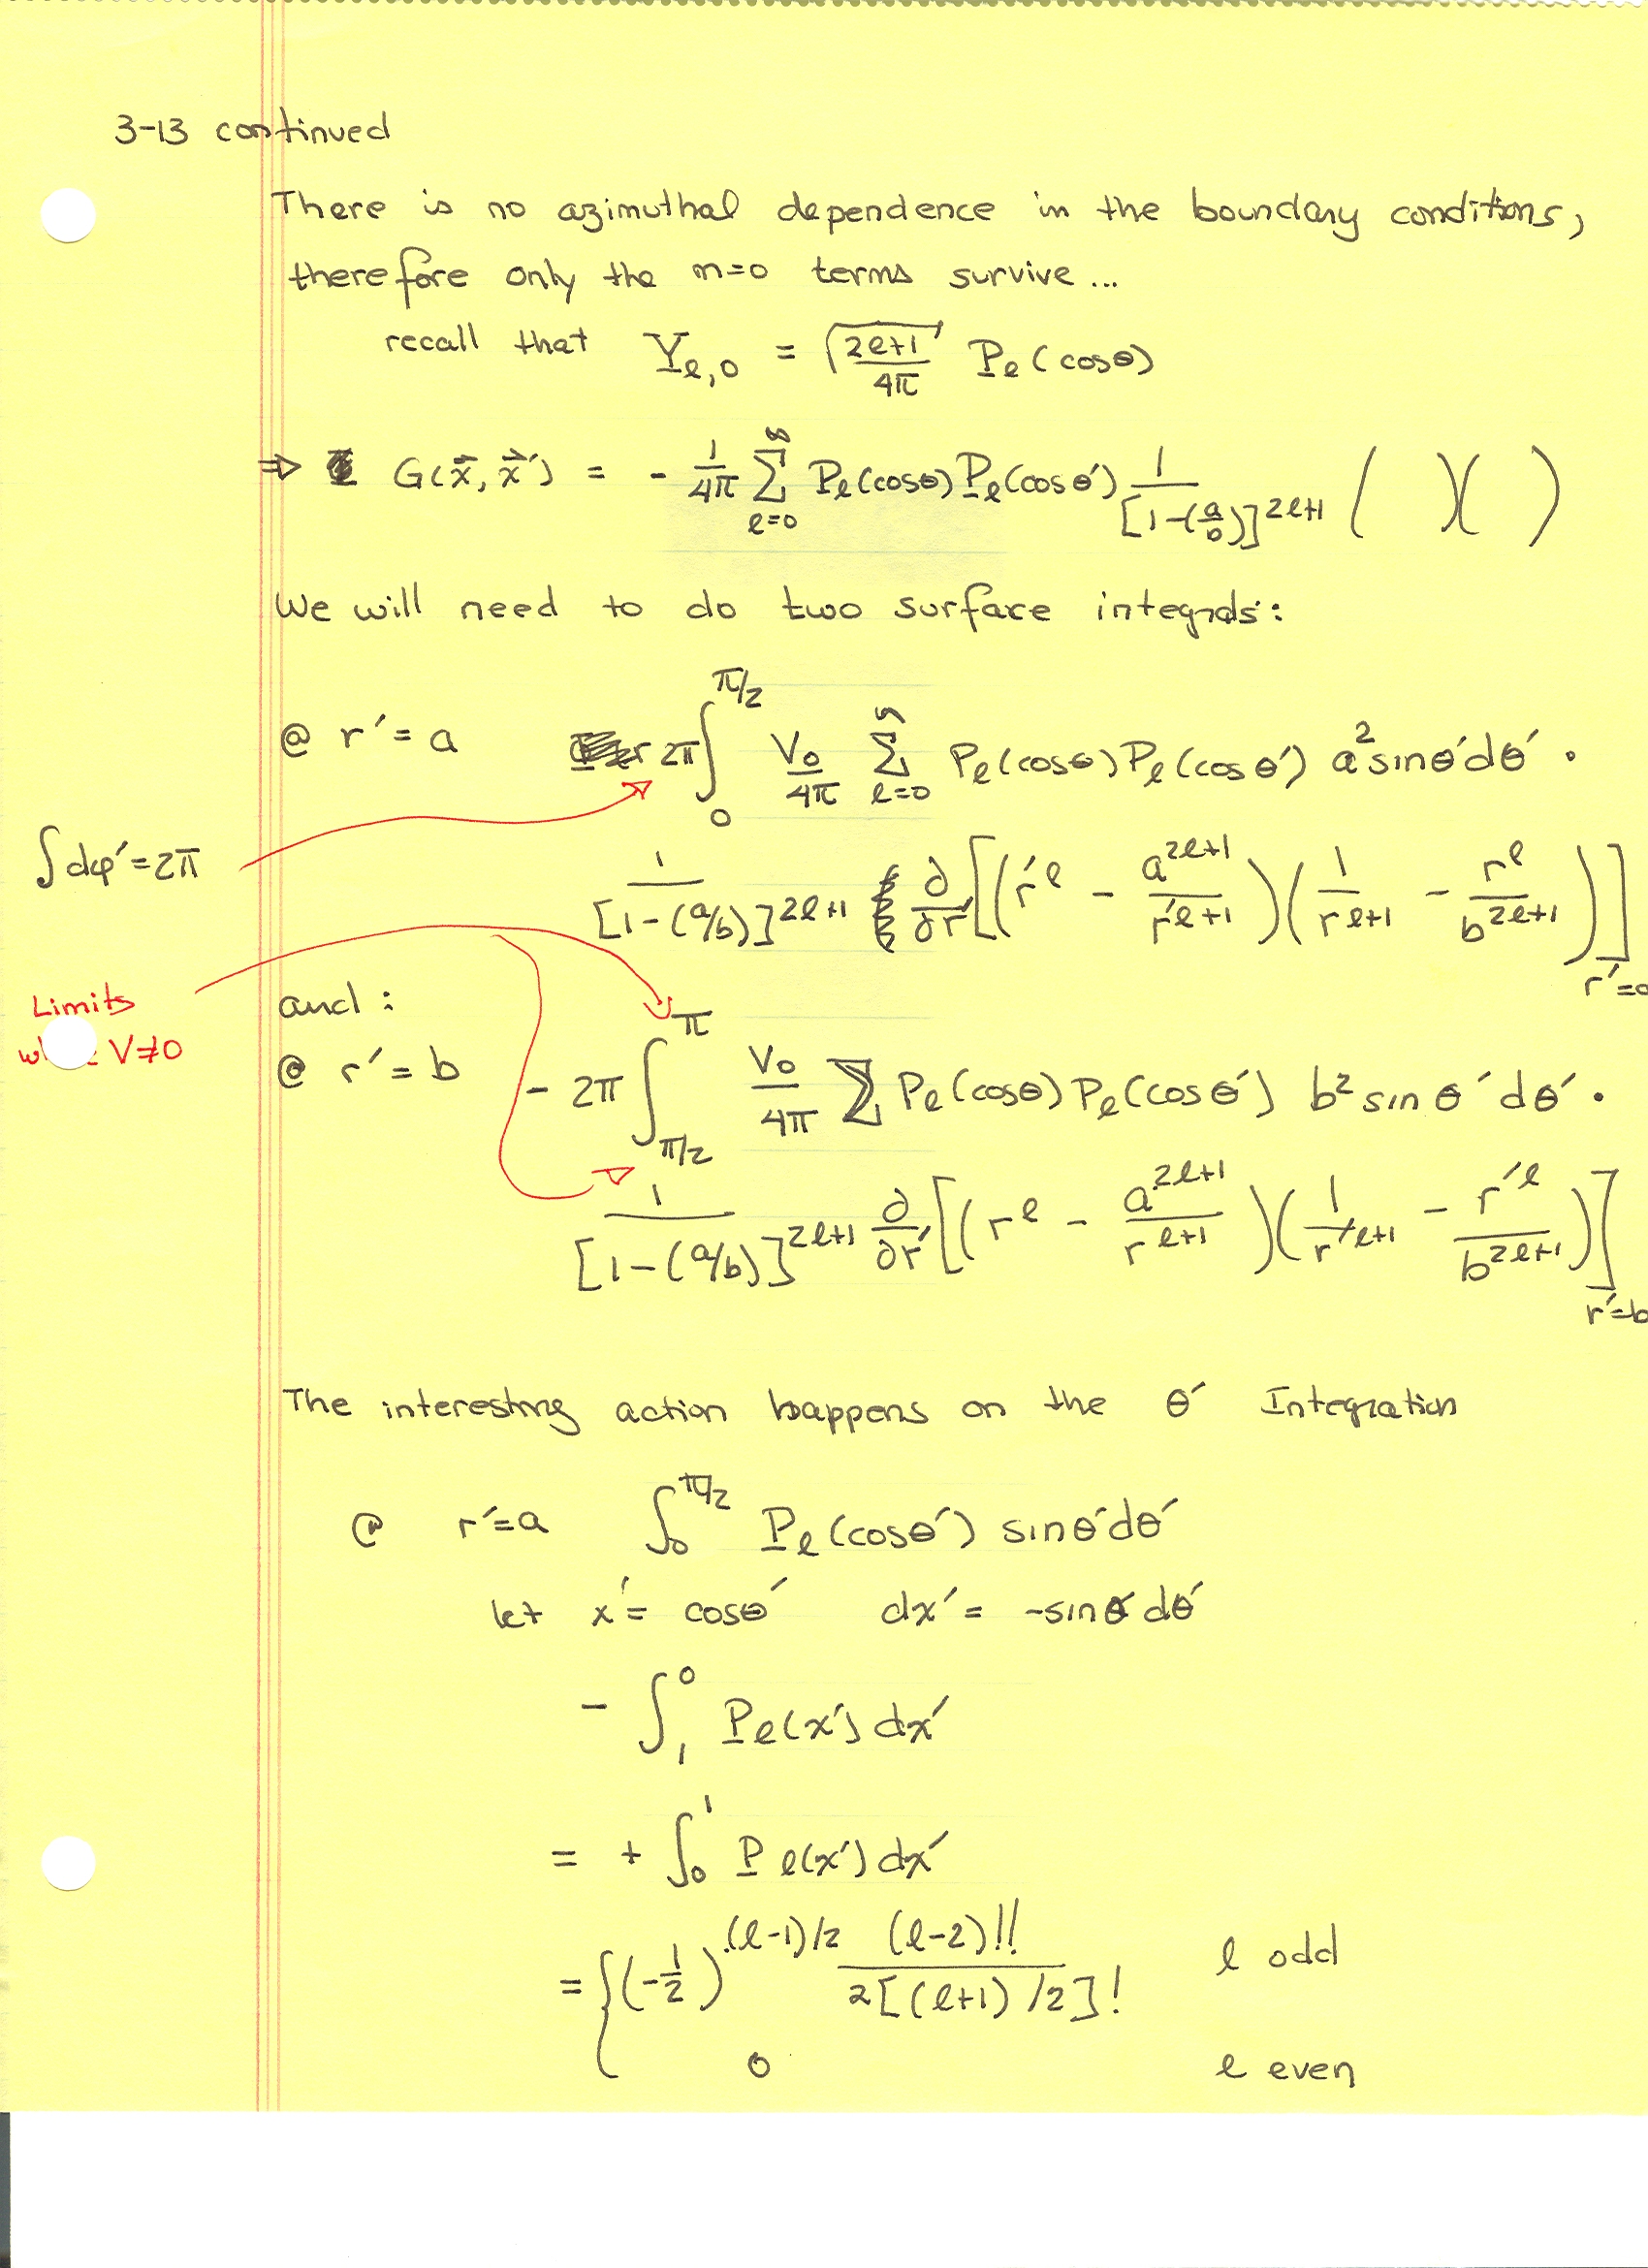 3-13 continued
There is no azimuthal dependence in the boundary conditions,
therefore only the m=0 terms survive...
recall that Y_{ℓ,0} = √((2ℓ+1)/4π) P_ℓ(cosθ)
⇒ G(x⃗, x⃗′) = - 1/4π Σ_{ℓ=0}^{∞} P_ℓ(cosθ) P_ℓ(cosθ′) 1/[1-(a/b)]^{2ℓ+1} (   )(   )
We will need to do two surface integrals:
@ r′= a   2π ∫_0^{π/2} V₀/4π Σ_{ℓ=0}^{∞} P_ℓ(cosθ) P_ℓ(cosθ′) a² sinθ′dθ′ ·
∫dφ′=2π
1/[1-(a/b)]^{2ℓ+1} ∂/∂r′ [(r′^ℓ - a^{2ℓ+1}/r′^{ℓ+1})(1/r^{ℓ+1} - r^ℓ/b^{2ℓ+1})]_{r′=a}
Limits
V≠0
and:
@ r′= b   - 2π ∫_{π/2}^{π} V₀/4π Σ P_ℓ(cosθ) P_ℓ(cosθ′) b² sinθ′ dθ′ ·
1/[1-(a/b)]^{2ℓ+1} ∂/∂r′ [(r^ℓ - a^{2ℓ+1}/r^{ℓ+1})(1/r′^{ℓ+1} - r′^ℓ/b^{2ℓ+1})]_{r′=b}
The interesting action happens on the θ′ Integration
@ r′=a   ∫_0^{π/2} P_ℓ(cosθ′) sinθ′dθ′
let x′= cosθ′   dx′= -sinθ′ dθ′
- ∫_1^0 P_ℓ(x′) dx′
= + ∫_0^1 P_ℓ(x′) dx′
= { (-1/2)^{(ℓ-1)/2} (ℓ-2)!!/2[(ℓ+1)/2]!   ℓ odd
0   ℓ even